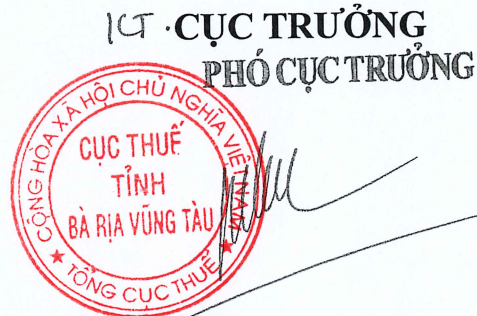 KT.CỤC TRƯỞNG
PHÓ CỤC TRƯỞNG
CỘNG HÒA XÃ HỘI CHỦ NGHĨA VIỆT NAM
CỤC THUẾ
TỈNH
BÀ RỊA VŨNG TÀU
★ TỔNG CỤC THUẾ ★